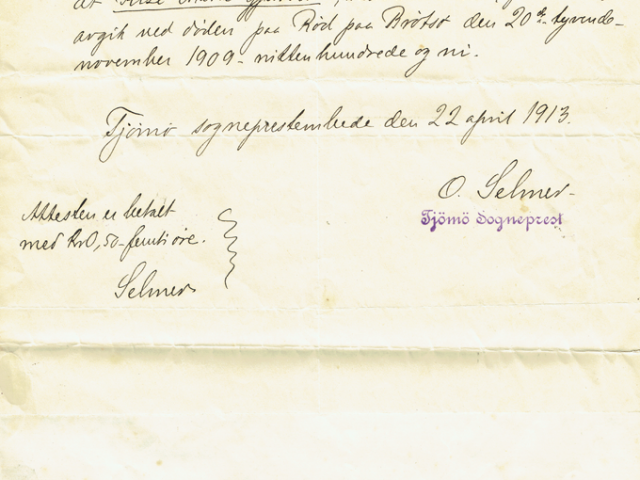 at
avgik ved döden paa Röd paa Brötsö den 20de tyvende-
november 1909 - nittenhundrede og ni.
Tjömö sogneprestembede den 22 april 1913.
O. Selmer
Tjömö Sogneprest
Attesten er betalt
med Kr 0,50 - femti öre.
Selmer